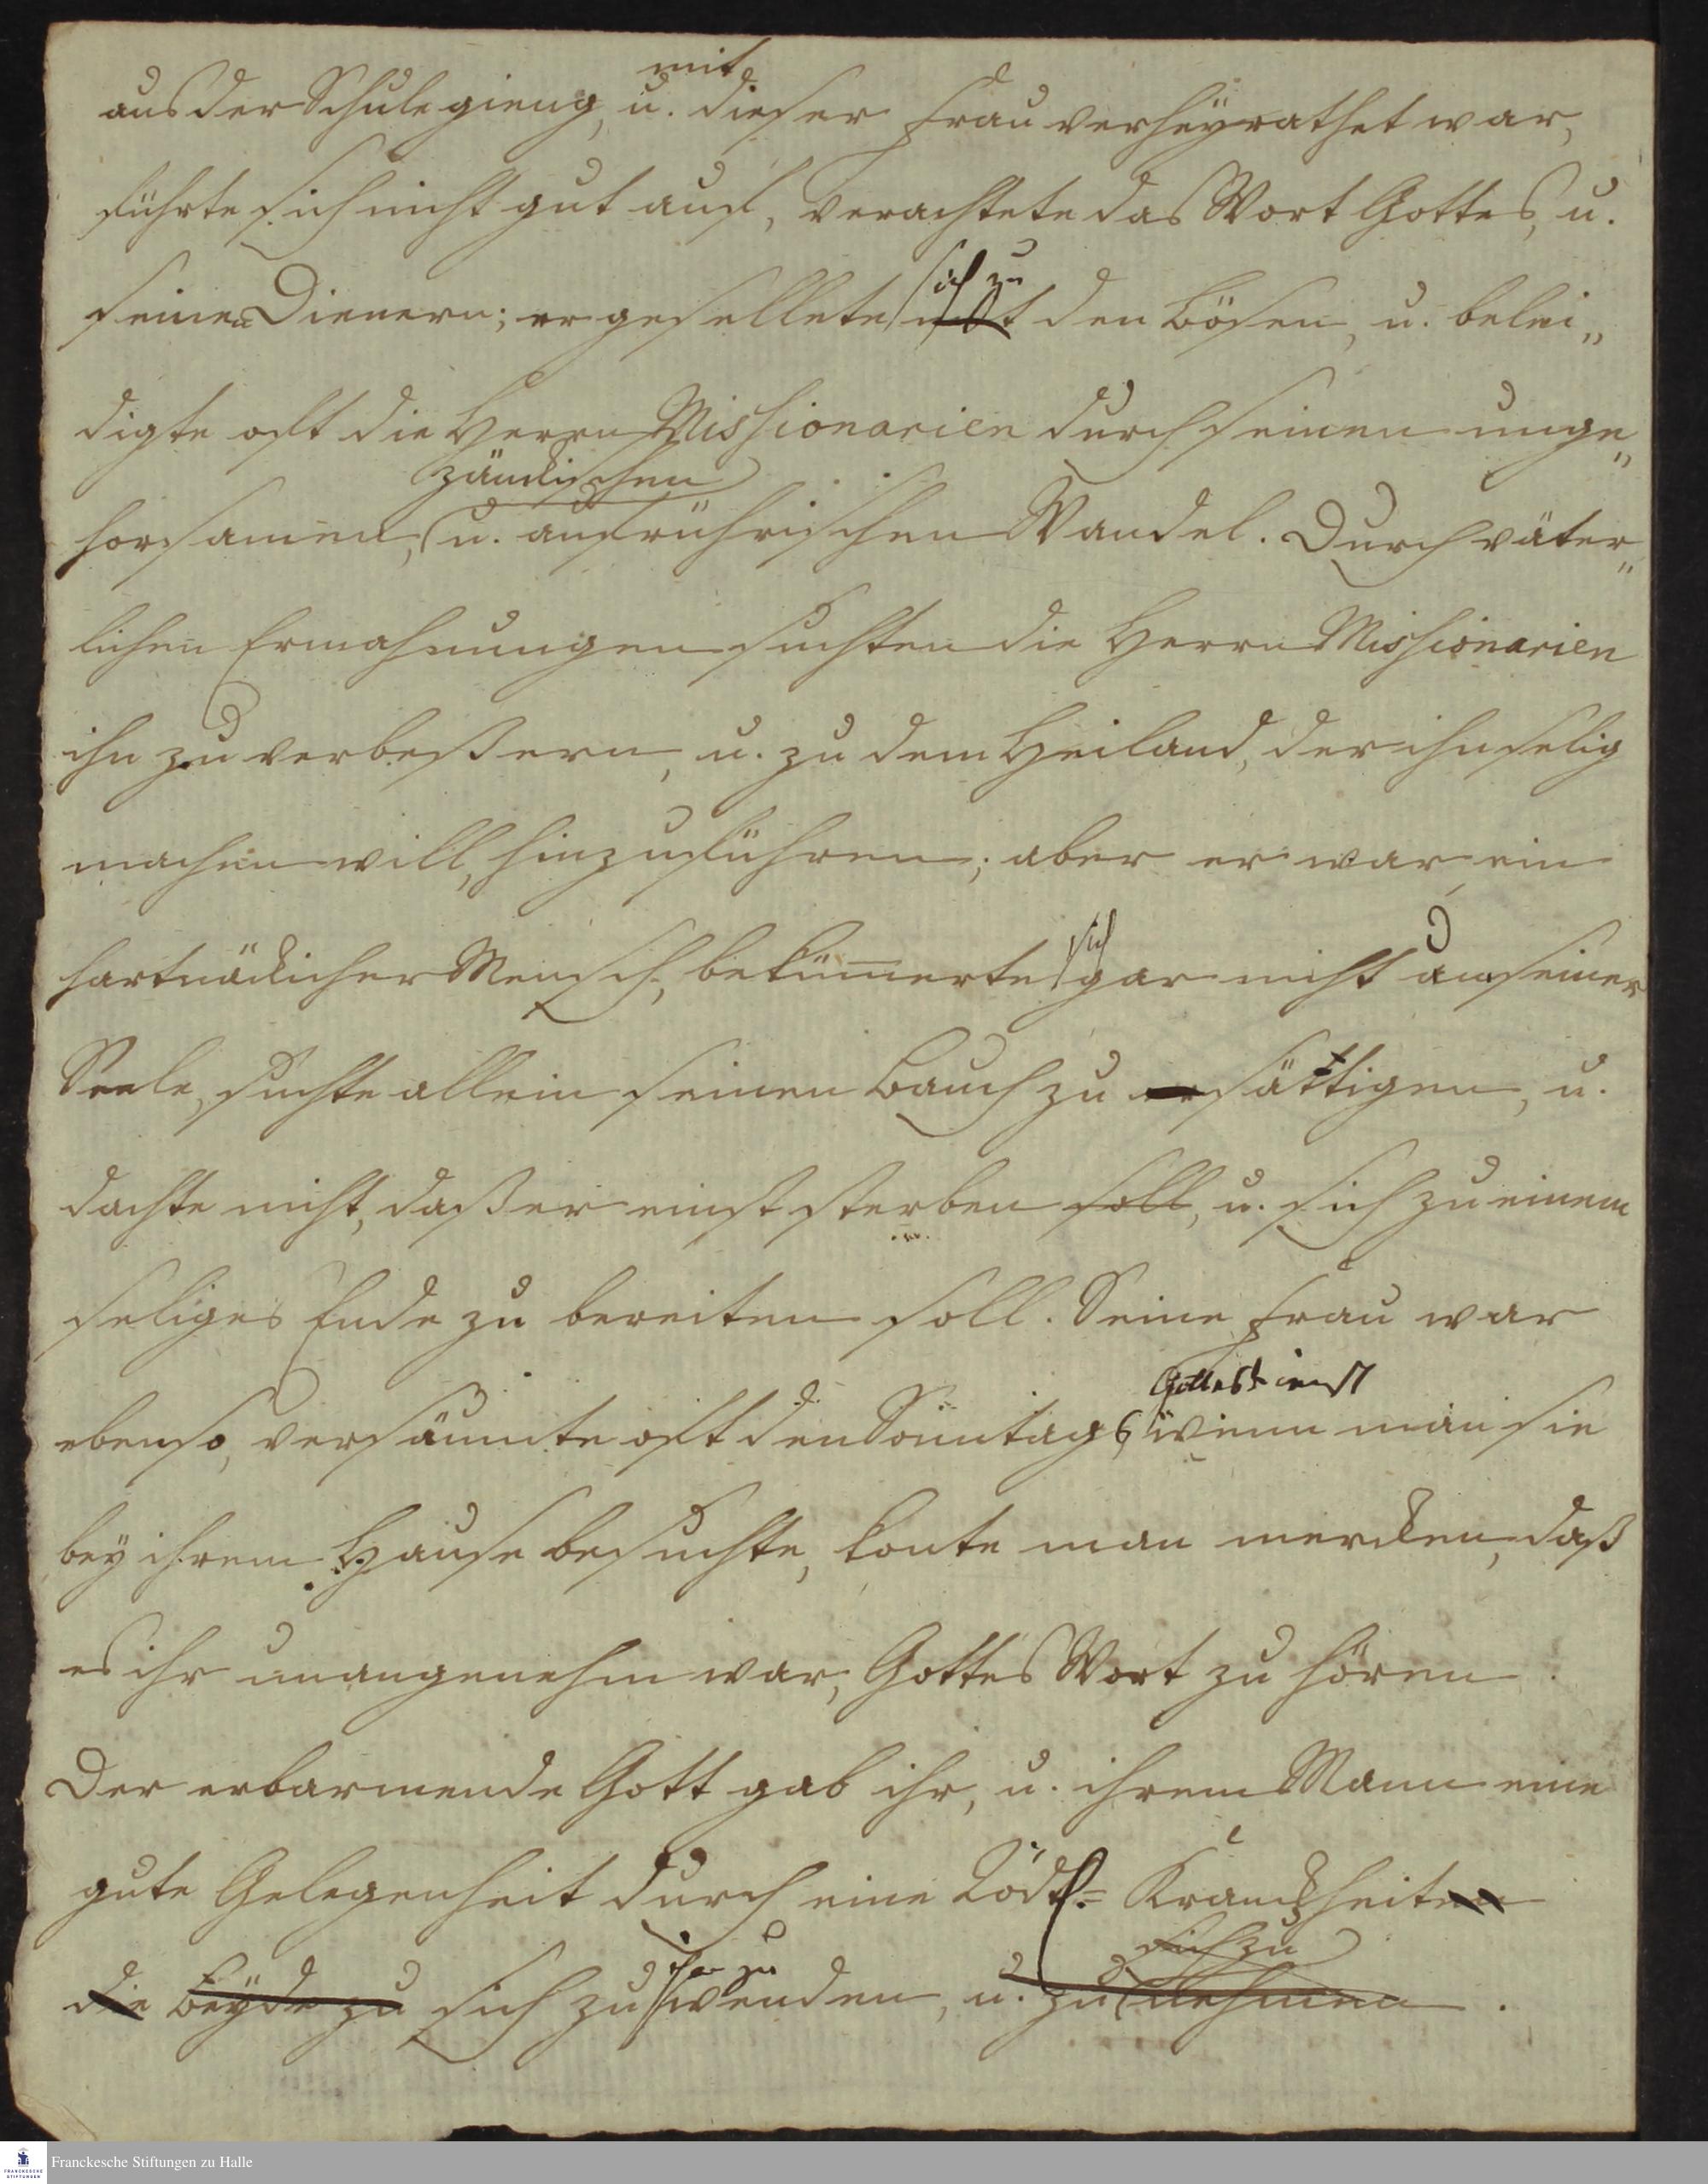 mit
aus der Schule gieng, u. dieser Frau verheyrathet war,
führte sich nicht gut auf, verachtete das Wort Gottes, u.
seinen Dienern; er gesellete sich zu den Bösen, u. belei„
digte oft die Herrn Missionarien durch seinen unge„
zänckischen
horsamen, u. aufrührischen Wandel. Durch väter„
lichen Ermahnungen suchten die Herrn Missionarien
ihn zu verbeßern, u. zu dem Heiland, der ihn selig
machen will, hinzuführen; aber er war ein
sich
hartnäckicher Mensch, bekümerte gar nicht um seiner
Seele, suchte allein seinen Bauch zu sättigen, u.
dachte nicht, daß er einst sterben soll, u. sich zu einem
seliges Ende zu bereiten soll. Seine Frau war
Gottesdienst
ebenso, versäumte oft den Sonntags, wenn man sie
bey ihrem Hause besuchte, konte man mercken, daß
es ihr unangenehm war, Gottes Wort zu hören.
Der erbarmende Gott gab ihr, u. ihrem Mann eine
gute Gelegenheit durch eine tödtl= Kranckheiten
sich zu
die beyde zu sich zu wenden, u. zu nehmen.
Franckesche Stiftungen zu Halle